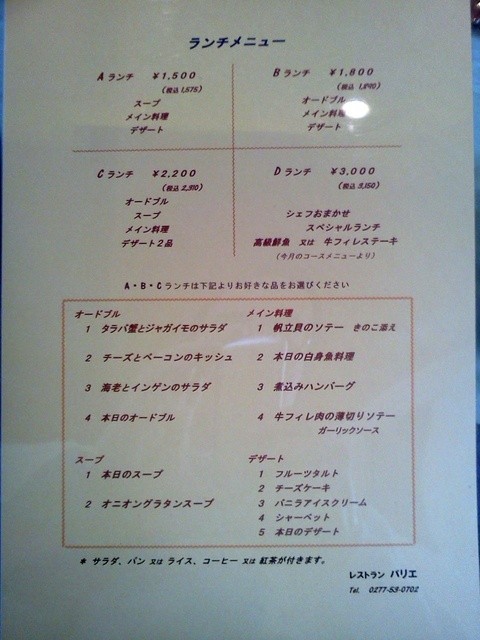 ランチメニュー
A ランチ ¥1,500
(税込 1,575)
スープ
メイン料理
デザート
B ランチ ¥1,800
(税込 1,890)
オードブル
メイン料理
デザート
C ランチ ¥2,200
(税込 2,310)
オードブル
スープ
メイン料理
デザート2品
D ランチ ¥3,000
(税込 3,150)
シェフおまかせ
スペシャルランチ
高級鮮魚 又は 牛フィレステーキ
(今月のコースメニューより)
A・B・Cランチは下記よりお好きな品をお選びください
オードブル
1 タラバ蟹とジャガイモのサラダ
2 チーズとベーコンのキッシュ
3 海老とインゲンのサラダ
4 本日のオードブル
メイン料理
1 帆立貝のソテー きのこ添え
2 本日の白身魚料理
3 煮込みハンバーグ
4 牛フィレ肉の薄切りソテー
ガーリックソース
スープ
1 本日のスープ
2 オニオングラタンスープ
デザート
1 フルーツタルト
2 チーズケーキ
3 バニラアイスクリーム
4 シャーベット
5 本日のデザート
* サラダ、パン 又は ライス、コーヒー 又は 紅茶が付きます。
レストラン バリエ
Tel. 0277-53-0702